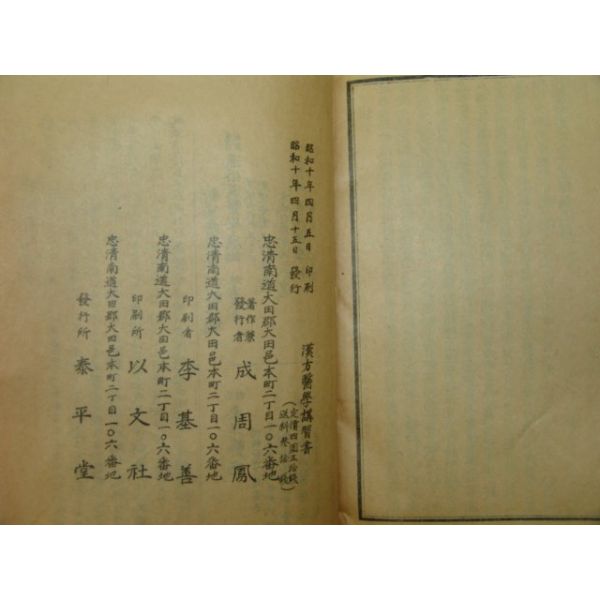 昭和十年四月五日 印刷
昭和十年四月十五日 發行
漢方醫學講習書
(定價四圓五拾錢
送料 拾 錢)
忠清南道大田郡大田邑本町二丁目一〇六番地
著作兼
發行者 成周鳳
忠清南道大田郡大田邑本町二丁目一〇六番地
印刷者 李基善
忠清南道大田郡大田邑本町二丁目一〇六番地
印刷所 以文社
忠清南道大田郡大田邑本町二丁目一〇六番地
發行所 泰平堂